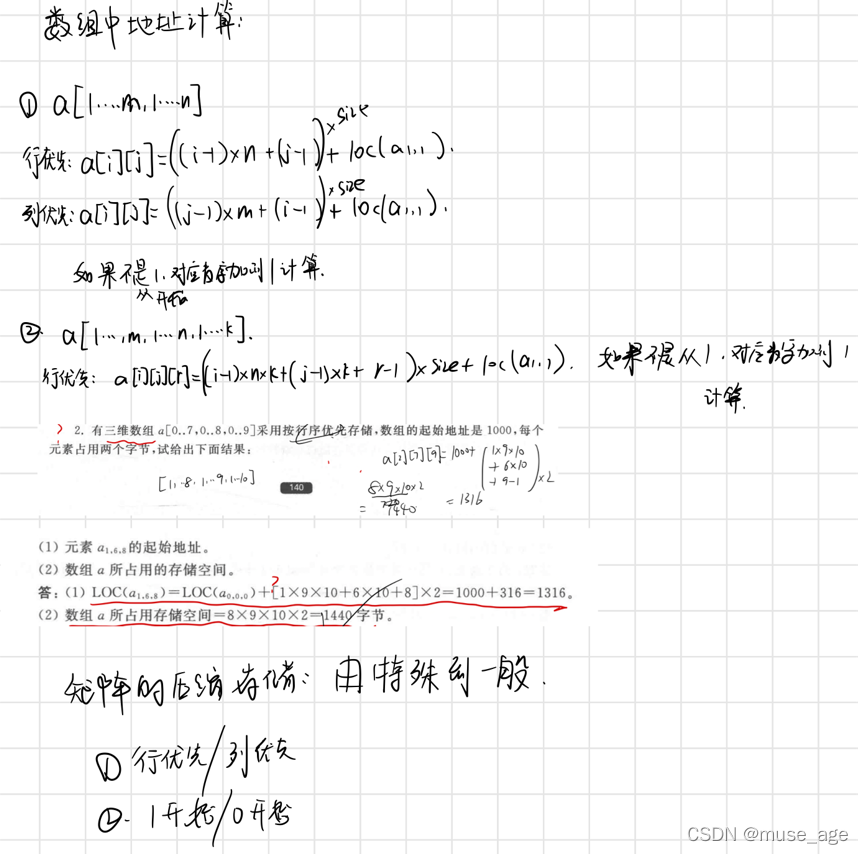 数组中地址计算:
① a[1...m,1...n]
行优先: a[i][j]=((i-1)×n+(j-1))×size+loc(a1,1).
列优先: a[i][j]=((j-1)×m+(i-1))×size+loc(a1,1).
如果不是从1开始,对应数字加到1计算.
② a[1...m,1...n,1...k].
行优先: a[i][j][r]=((i-1)×n×k+(j-1)×k+r-1)×size+loc(a1,1). 如果不是从1,对应数字加到1
计算.
? 2. 有三维数组 a[0..7,0..8,0..9]采用按行序优先存储,数组的起始地址是 1000,每个
元素占用两个字节,试给出下面结果:
a[2][7][9]=1000+(1×9×10+6×10+9-1)×2
[1,..8,1...9,1..10]
140
8×9×10×2
=1440
=1316
(1) 元素 a1,6,8的起始地址。
(2) 数组 a 所占用的存储空间。
?
答:(1) LOC(a1,6,8)=LOC(a0,0,0)+[1×9×10+6×10+8]×2=1000+316=1316。
(2) 数组 a 所占用存储空间=8×9×10×2=1440 字节。
矩阵的压缩存储: 由特殊到一般.
① 行优先/列优先
②. 1开始/0开始
CSDN @muse_age